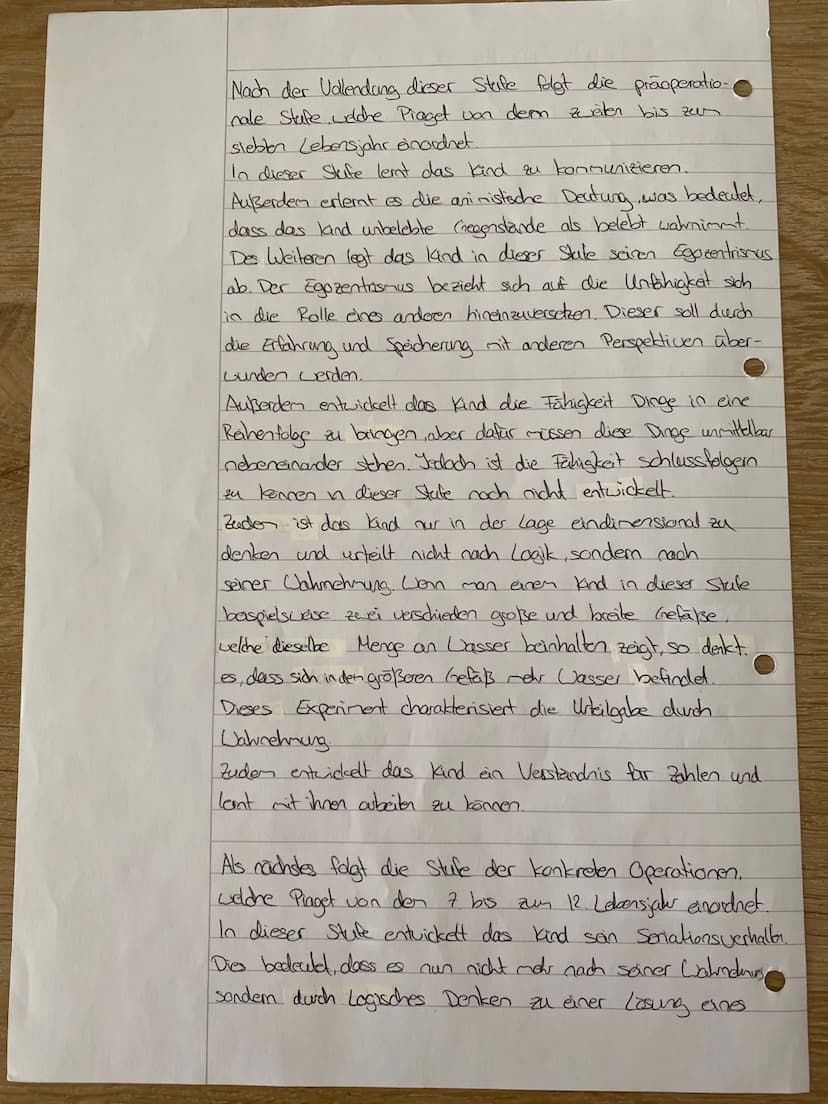 Nach der Vollendung dieser Stufe folgt die präoperatio-
nale Stufe, welche Piaget von dem zweiten bis zum
siebten Lebensjahr einordnet.
In dieser Stufe lernt das Kind zu kommunizieren.
Außerdem erlernt es die animistische Deutung, was bedeutet,
dass das Kind unbelebte Gegenstände als belebt wahrnimmt.
Des Weiteren legt das Kind in dieser Stufe seinen Egozentrismus
ab. Der Egozentrismus bezieht sich auf die Unfähigkeit sich
in die Rolle eines anderen hineinzuversetzen. Dieser soll durch
die Erfahrung und Speicherung mit anderen Perspektiven über-
wunden werden.
Außerdem entwickelt das Kind die Fähigkeit Dinge in eine
Reihenfolge zu bringen, aber dafür müssen diese Dinge unmittelbar
nebeneinander stehen. Jedoch ist die Fähigkeit schlussfolgern
zu können in dieser Stufe noch nicht entwickelt.
Zudem ist das Kind nur in der Lage eindimensional zu
denken und urteilt nicht nach Logik, sondern nach
seiner Wahrnehmung. Wenn man einem Kind in dieser Stufe
beispielsweise zwei verschieden große und breite Gefäße,
welche dieselbe Menge an Wasser beinhalten, zeigt, so denkt
es, dass sich in dem größeren Gefäß mehr Wasser befindet.
Dieses Experiment charakterisiert die Urteilgabe durch
Wahrnehmung.
Zudem entwickelt das Kind ein Verständnis für Zahlen und
lernt mit ihnen arbeiten zu können.
Als nächstes folgt die Stufe der konkreten Operationen,
welche Piaget von dem 7 bis zum 12. Lebensjahr einordnet.
In dieser Stufe entwickelt das Kind sein Seriationsverhalten.
Dies bedeutet, dass es nun nicht mehr nach seiner Wahrnehmung,
sondern durch Logisches Denken zu einer Lösung eines